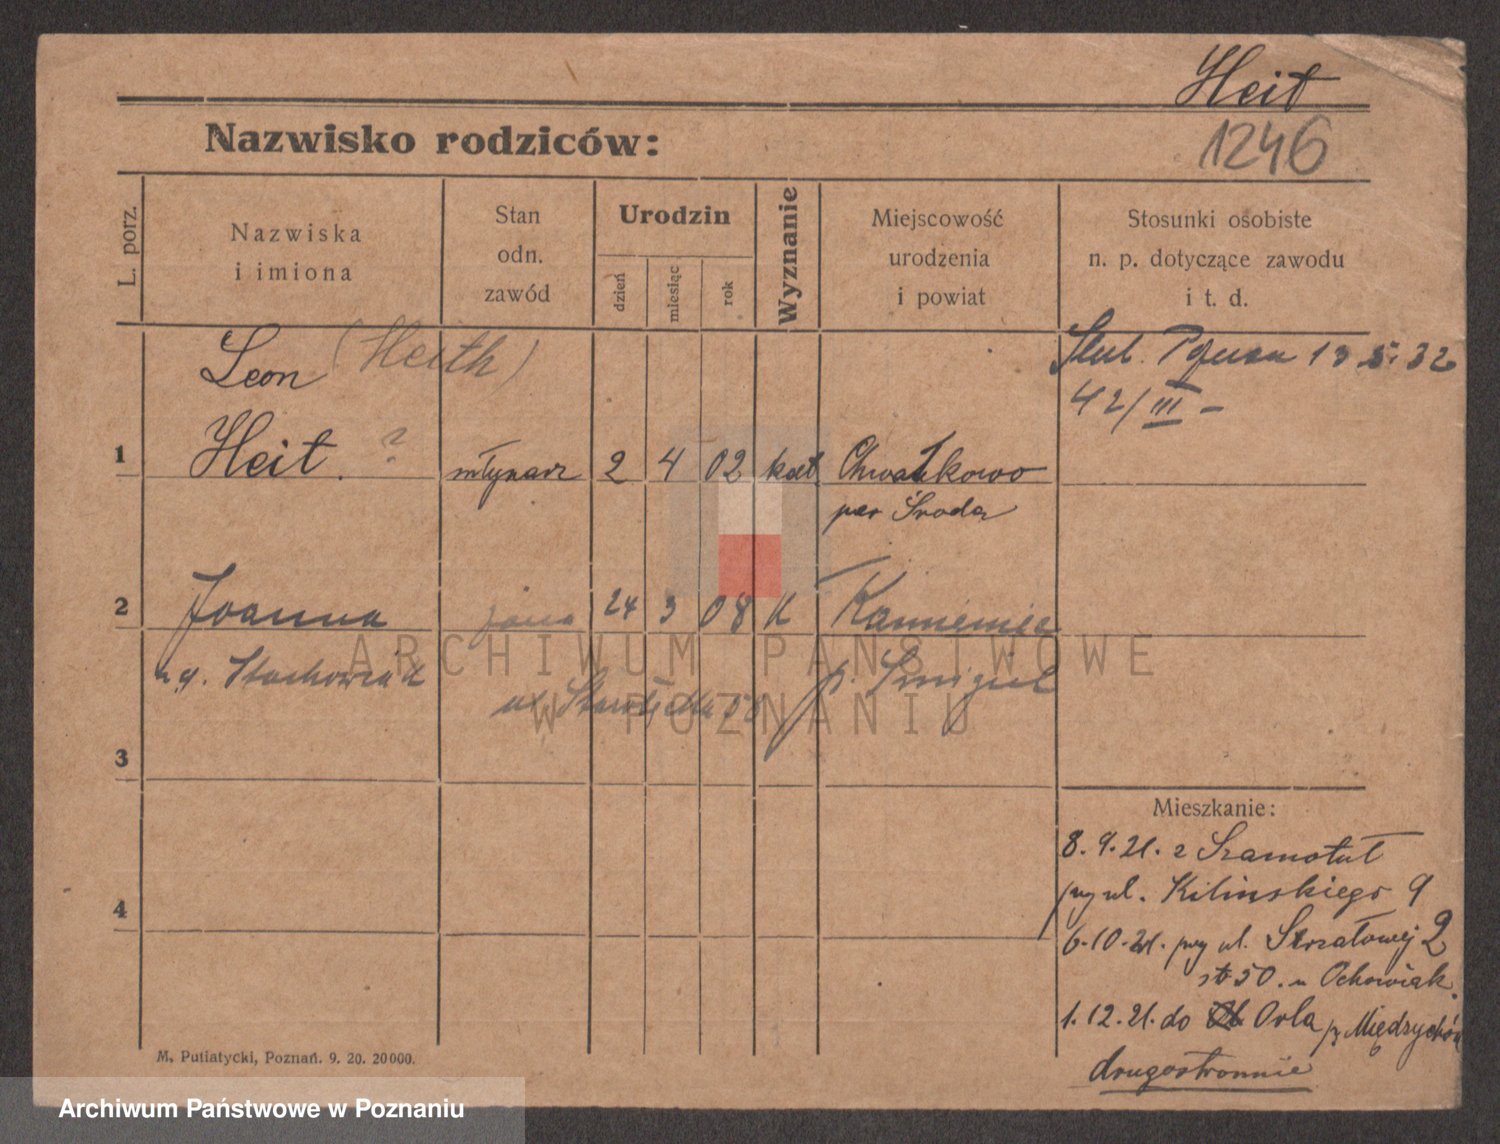 Heit
Nazwisko rodziców:
1246
L. porz.
Nazwiska
i imiona
Stan
odn.
zawód
Urodzin
dzień
miesiąc
rok
Wyznanie
Miejscowość
urodzenia
i powiat
Stosunki osobiste
n. p. dotyczące zawodu
i t. d.
Leon (Heith)
1 Heit. ? młynarz 2 4 02 kat Chwałkowo
Środa
42/III -
2 Joanna żona 24 3 08 K
Stachowiak p. Śmigiel
3
4
Mieszkanie:
8.9.21. z Szamotuł
przy ul. Kilińskiego 9
6.10.21. przy ul. Strzałowej 2
50. u Ochowiak.
1.12.21. do Orla p. Międzychód
drugostronnie
M. Putiatycki, Poznań. 9. 20. 20000.
ARCHIWUM PAŃSTWOWE
W POZNANIU
Archiwum Państwowe w Poznaniu